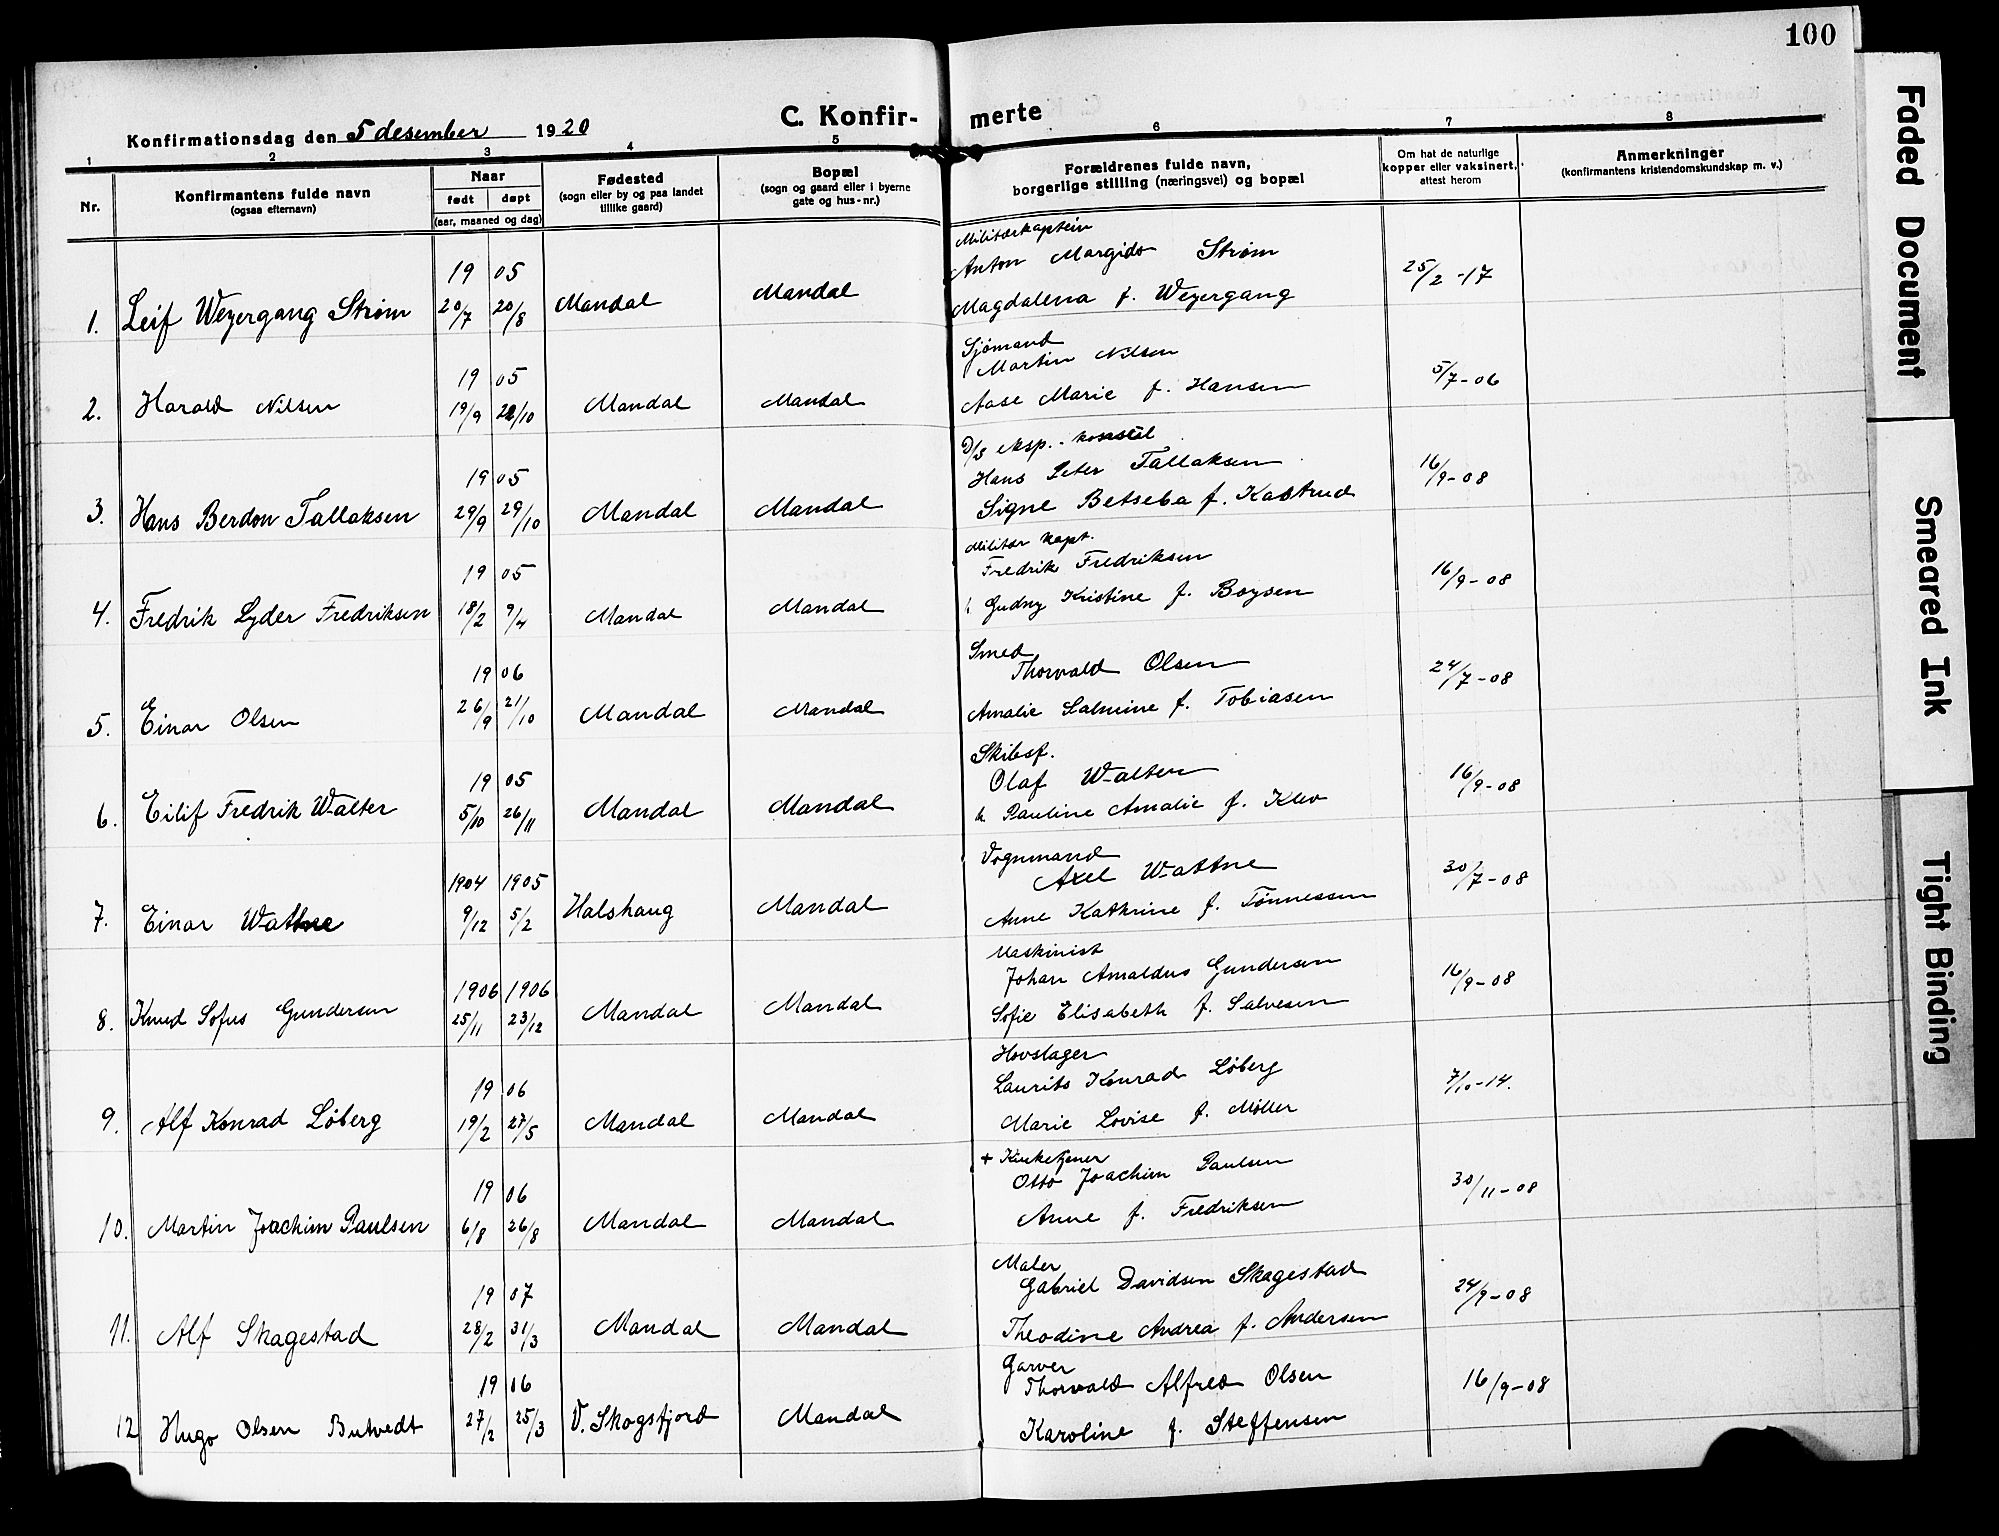 100
C. Konfir- merte
Konfirmationsdag den 5 desember 1920
1 2 3 4 5 6 7 8
Nr.
Konfirmantens fulde navn
(ogsaa efternavn)
Naar
født døpt
(aar, maaned og dag)
Fødested
(sogn eller by og paa landet
tillike gaard)
Bopæl
(sogn og gaard eller i byerne
gate og hus-nr.)
Forældrenes fulde navn,
borgerlige stilling (næringsvei) og bopæl
Om hat de naturlige
kopper eller vaksinert,
attest herom
Anmerkninger
(konfirmantens kristendomskundskap m. v.)
Militærkaptein
19 05 Anton Margido Strøm 25/2 -17
1. Leif Weyergang Strøm 20/7 20/8 Mandal Mandal Magdalena f. Weyergang
Sjömand
19 05 Martin Nilsen 5/7-06
2. Harald Nilsen 19/9 22/10 Mandal Mandal Aase Marie f. Hansen
D/S eksp.
19 05 Hans Peter Tallaksen 16/9-08
3. Hans Berdon Tallaksen 29/9 29/10 Mandal Mandal Signe Betseba f. Kastrud
Militær kapt.
19 05 Fredrik Fredriksen 16/9-08
4. Fredrik Lyder Fredriksen 18/2 9/4 Mandal Mandal Gudny Kristine f. Boysen
Smed
19 06 Thorvald Olsen 24/7-08
5. Einar Olsen 26/9 21/10 Mandal Mandal Amalie Salmine f. Tobiasen
Skibsf.
19 05 Olaf Walter 16/9-08
6. Eilif Fredrik Walter 5/10 26/11 Mandal Mandal h. Pauline Amalie f. Klev
Vognmand
1904 1905 Axel Wattne 30/7-08
7. Einar Wattne 9/12 5/2 Halshaug Mandal Anne Kathrine f. Tønnessen
Maskinist
1906 1906 Johan Arnaldus Gundersen 16/9-08
8. Knud Sofus Gundersen 25/11 23/12 Mandal Mandal Sofie Elisabeth f. Salvesen
Hovslager
19 06 Laurits Konrad Löberg 7/10-14.
9. Alf Konrad Löberg 19/2 27/5 Mandal Mandal Marie Lovise f. Møller
+ Kirketjener
19 06 Otto Joachim Paulsen 30/11-08
10. Martin Joachim Paulsen 6/8 26/8 Mandal Mandal Anne f. Fredriksen
Maler
19 07 Gabriel Davidsen Skagestad 24/9-08
11. Alf Skagestad 28/2 31/3 Mandal Mandal Theodine Andrea f. Andersen
Garver
19 06 Thorvald Alfred Olsen 16/9-08
12 Hugo Olsen Butvedt 27/2 25/3 V. Skogsfjord Mandal Karoline f. Steffensen
Faded Document
Smeared Ink
Tight Binding